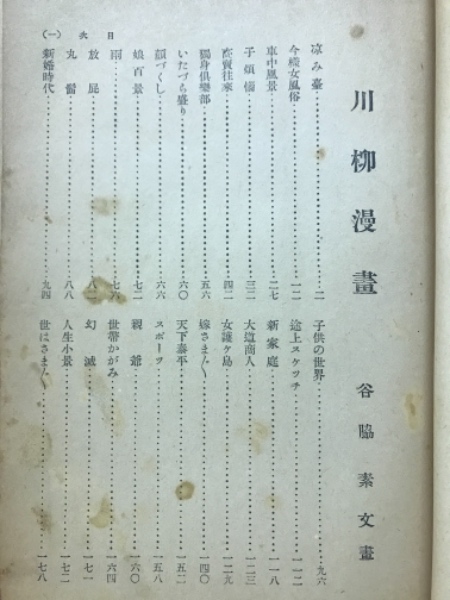 川柳漫畫
谷脇素文畫
凉み臺……二
今樣女風俗……一二
車中風景……二七
子煩惱……三二
商賣往來……四二
獨身俱樂部……五六
いたづら盛り……六〇
顏づくし……六六
娘百景……七二
雨……七六
放屁……八二
丸髷……八八
新婚時代……九四
子供の世界……九六
途上スケツチ……一一二
新家庭……一一八
大道商人……一二三
女護ケ島……一二九
嫁さま〴〵……一四〇
天下泰平……一五二
スポーツ……一五八
親爺……一六〇
世帶かがみ……一六四
幻滅……一七一
人生小景……一七二
世はさま〴〵……一七八
目次(一)